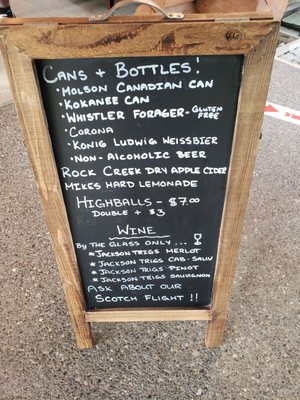 CANS + BOTTLES!
• MOLSON CANADIAN CAN
• KOKANEE CAN
• WHISTLER FORAGER - GLUTEN FREE
• CORONA
• KONIG LUDWIG WEISSBIER
• NON-ALCOHOLIC BEER
ROCK CREEK DRY APPLE CIDER
MIKES HARD LEMONADE
HIGHBALLS - $7.00
DOUBLE + $3
WINE
BY THE GLASS ONLY...
* JACKSON TRIGS MERLOT
* JACKSON TRIGS CAB-SAUV
* JACKSON TRIGS PINOT
* JACKSON TRIGS SAUVIGNON
ASK ABOUT OUR
SCOTCH FLIGHT !!